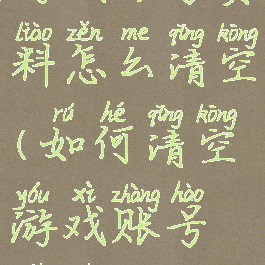 liào zěn me qīng kòng
料怎么清空
rú hé qīng kòng
(如何清空
yóu xì zhàng hào
游戏账号